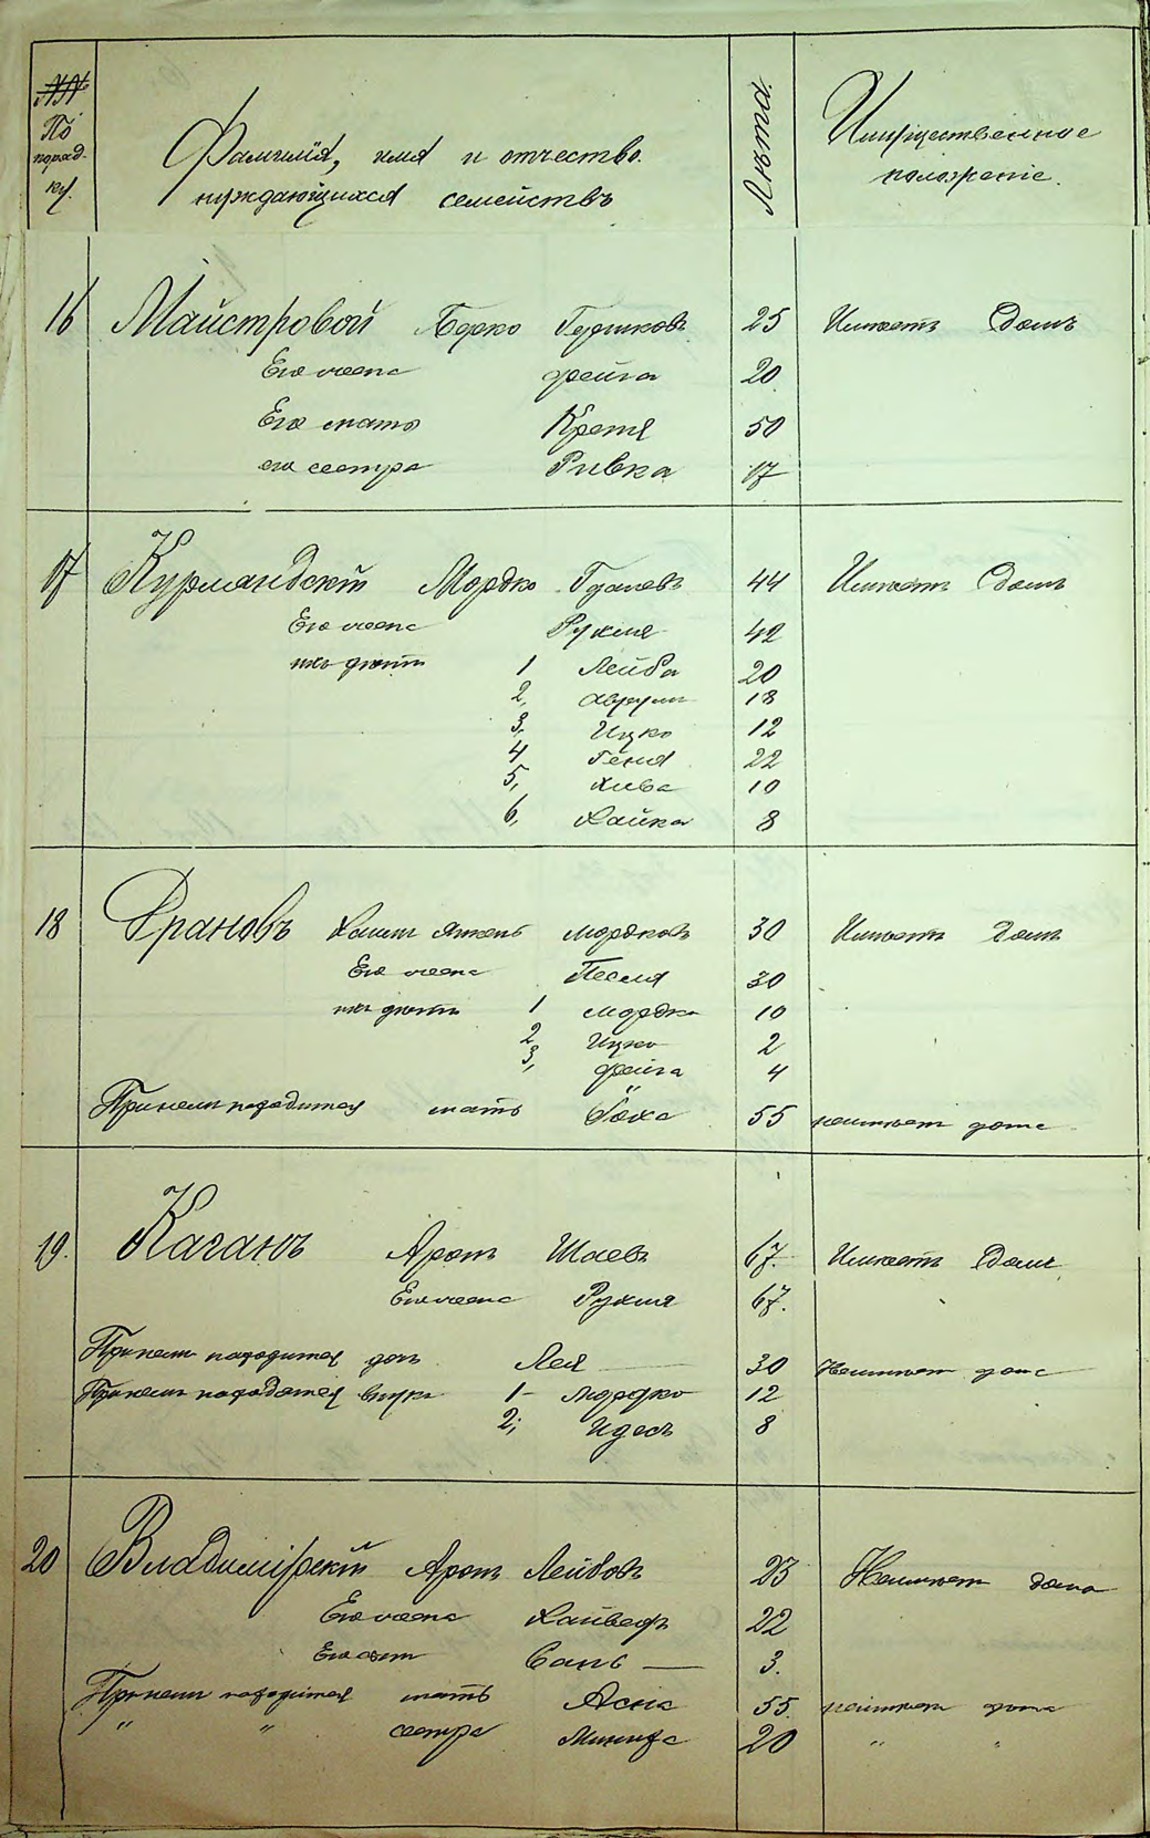 №№ По поряд- ку.
Фамилія, имя и отчество нуждающихся семействъ
Лѣта.
Имущественное положеніе.
16 Майстровой Берко Гершковъ 25 Имѣетъ Домъ
Его жена Фейга 20
Его мать Крейня 50
его сестра Ривка 17
17 Курляндскій Мордко 44 Имѣетъ Домъ
Его жена Рухля 42
ихъ дѣти 1 Лейба 20
2, Аврумъ 18
3, Ицко 12
4 Геня 22
5, Хива 10
6, Хайка 8
18 Драновъ Хаимъ Янкель Мордковъ 30 Имѣетъ Домъ
Его жена Песля 30
ихъ дѣти 1 Мордко 10
2 Ицко 2
3, Фейга 4
При немъ находится мать 55 неимѣетъ дома
19. Каганъ Аронъ Шаевъ 67. Имѣетъ Домъ
Его жена Рухля 67.
При немъ находится дочь Лея 30 Неимѣетъ дома
При немъ находятся внуки 1- Мордко 12
2; Идесъ 8
20 Владимірскій Аронъ Лейбовъ 23 Неимѣетъ дома
Его жена Хайведъ 22
Его 3.
При немъ находится мать 55. неимѣетъ дома
" " сестра 20 " "